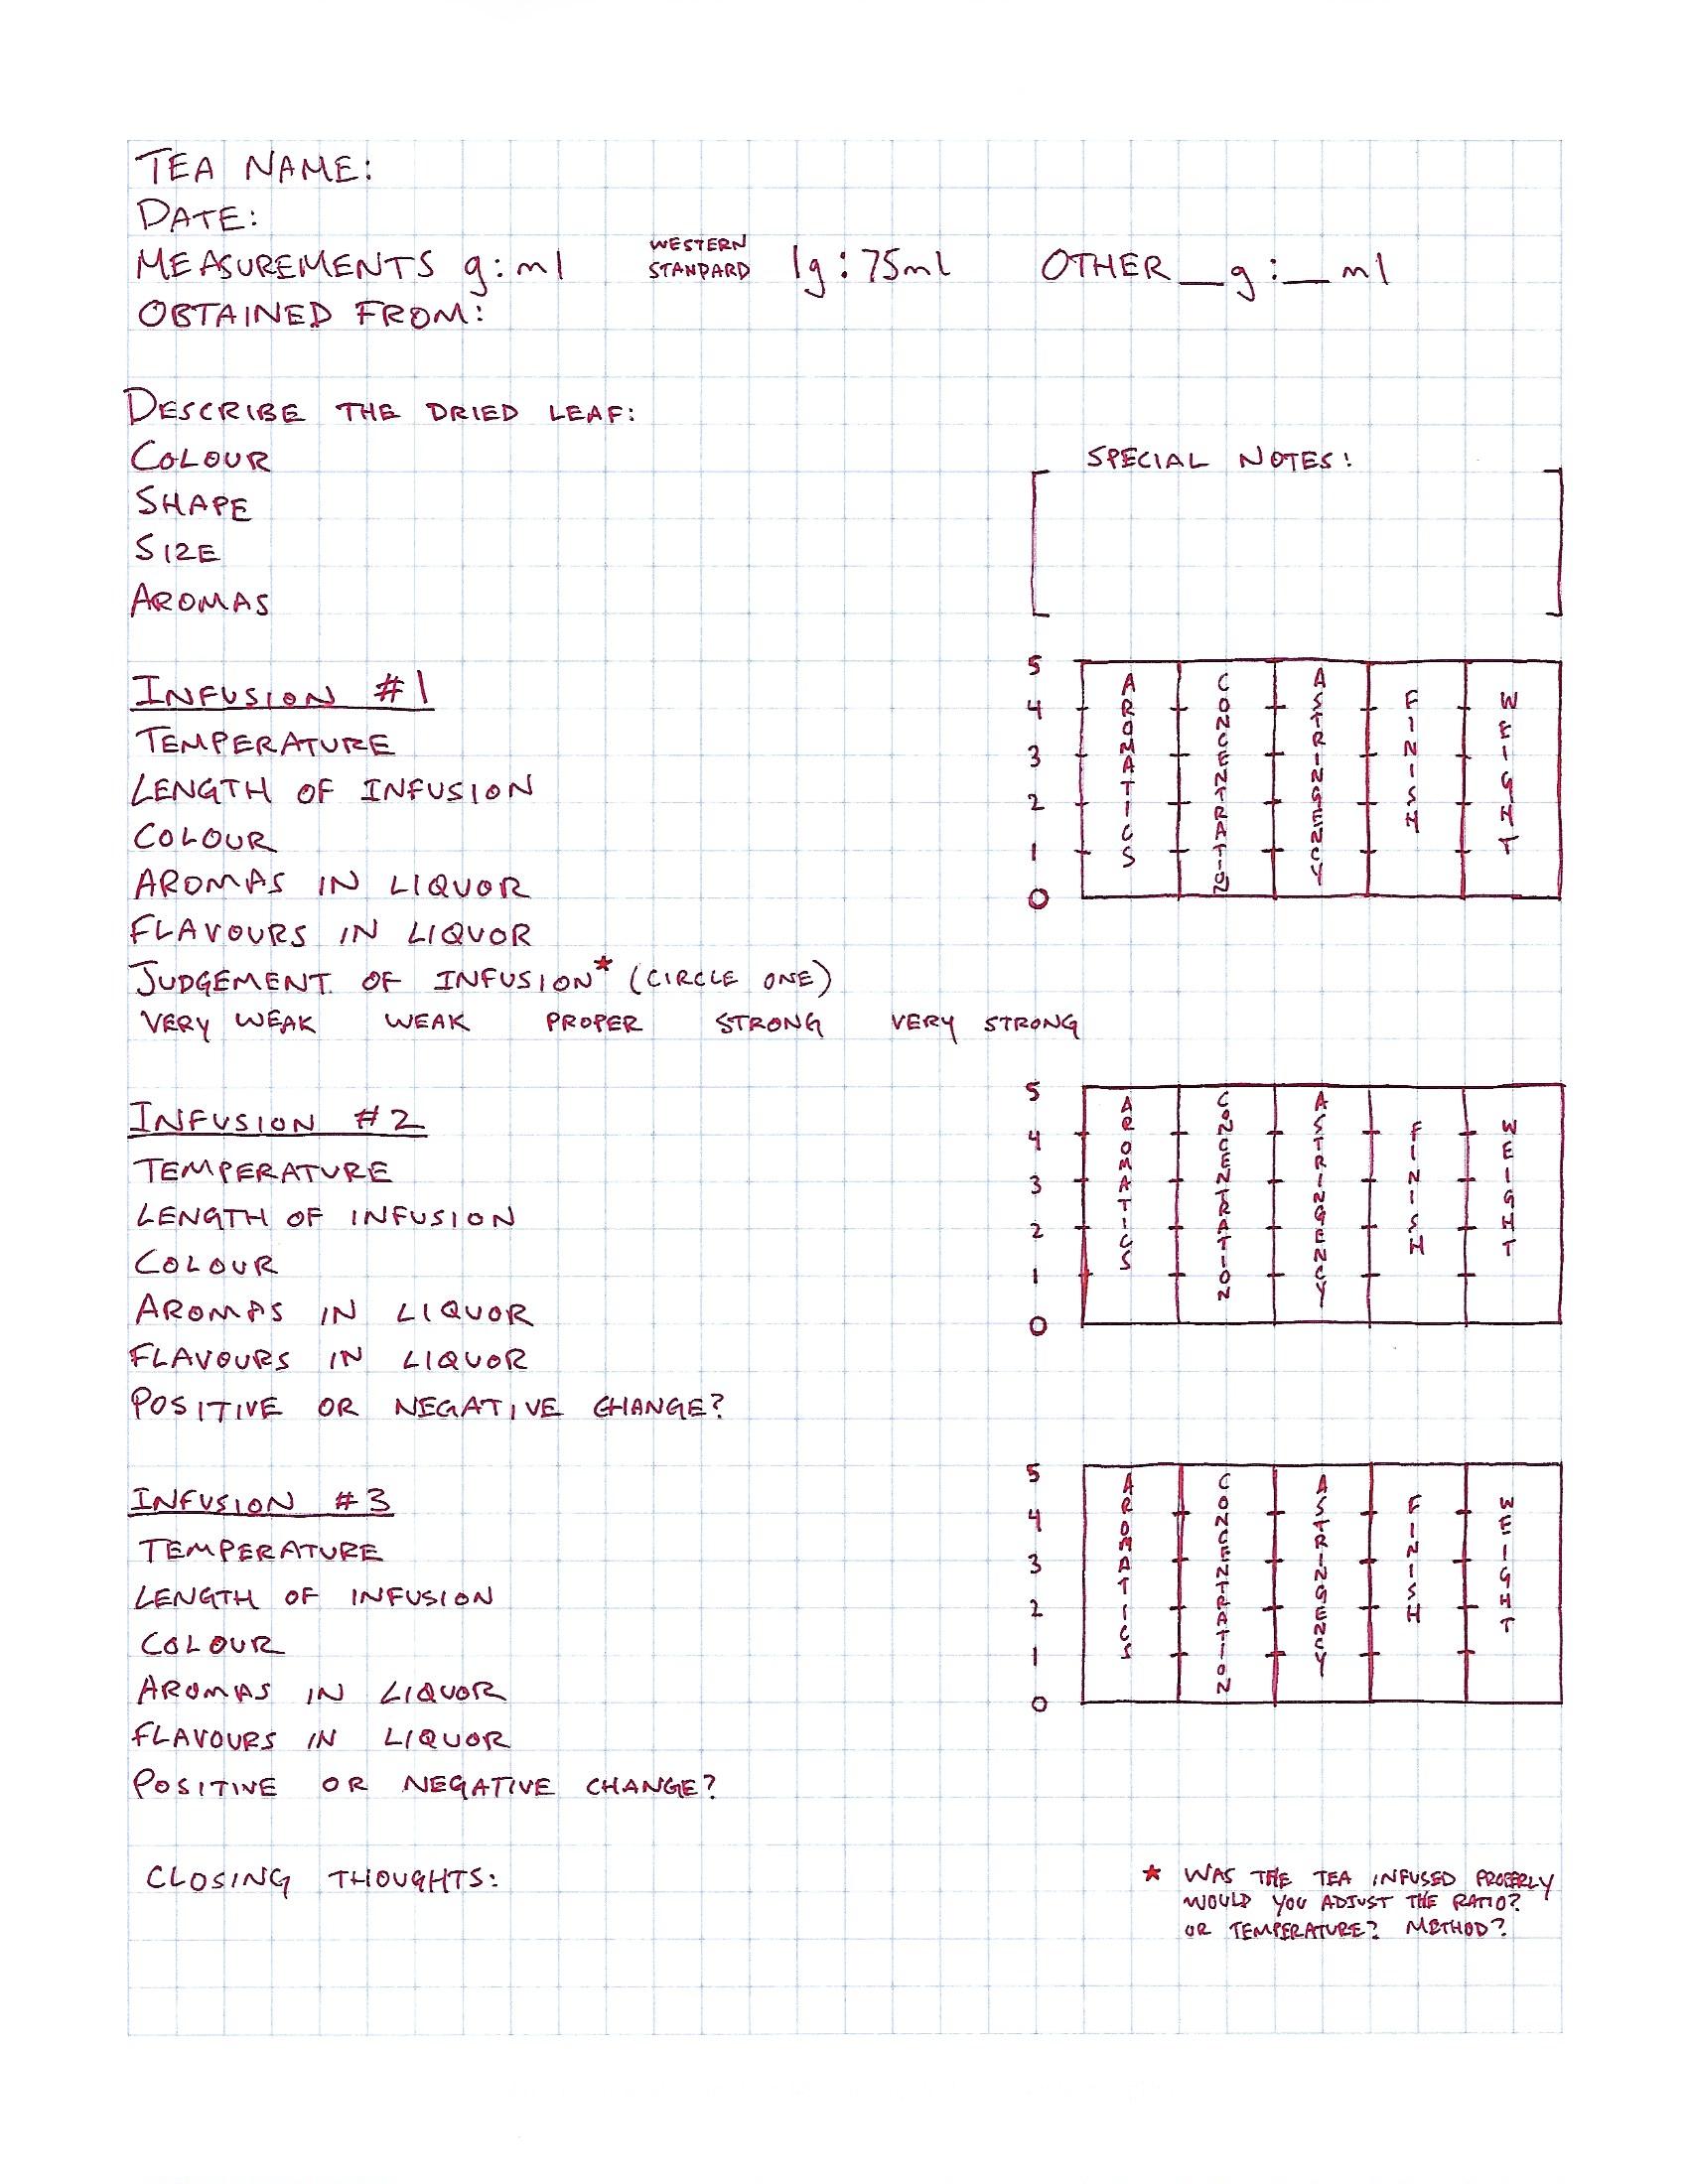 TEA NAME:
DATE:
MEASUREMENTS g:ml WESTERN STANDARD 1g:75ml OTHER__g:__ml
OBTAINED FROM:
DESCRIBE THE DRIED LEAF:
COLOUR
SHAPE
SIZE
AROMAS
SPECIAL NOTES:
INFUSION #1
TEMPERATURE
LENGTH OF INFUSION
COLOUR
AROMAS IN LIQUOR
FLAVOURS IN LIQUOR
JUDGEMENT OF INFUSION* (CIRCLE ONE)
VERY WEAK WEAK PROPER STRONG VERY STRONG
5
4
3
2
1
0
AROMATICS
CONCENTRATION
ASTRINGENCY
FINISH
WEIGHT
INFUSION #2
TEMPERATURE
LENGTH OF INFUSION
COLOUR
AROMAS IN LIQUOR
FLAVOURS IN LIQUOR
POSITIVE OR NEGATIVE CHANGE?
5
4
3
2
1
0
AROMATICS
CONCENTRATION
ASTRINGENCY
FINISH
WEIGHT
INFUSION #3
TEMPERATURE
LENGTH OF INFUSION
COLOUR
AROMAS IN LIQUOR
FLAVOURS IN LIQUOR
POSITIVE OR NEGATIVE CHANGE?
5
4
3
2
1
0
AROMATICS
CONCENTRATION
ASTRINGENCY
FINISH
WEIGHT
CLOSING THOUGHTS:
* WAS THE TEA INFUSED PROPERLY
WOULD YOU ADJUST THE RATIO?
OR TEMPERATURE? METHOD?